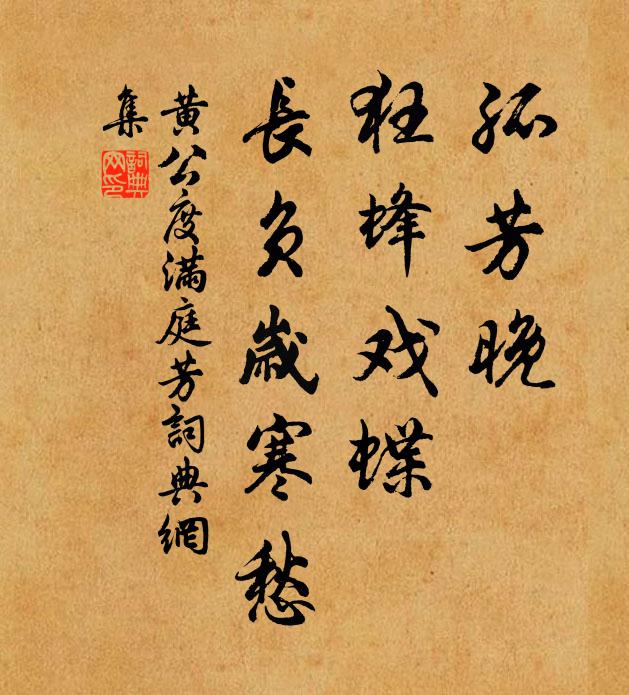 孤芳晚
狂蜂戏蝶
長負歲寒愁
黄公度滿庭芳詞典網
集
詞典網印